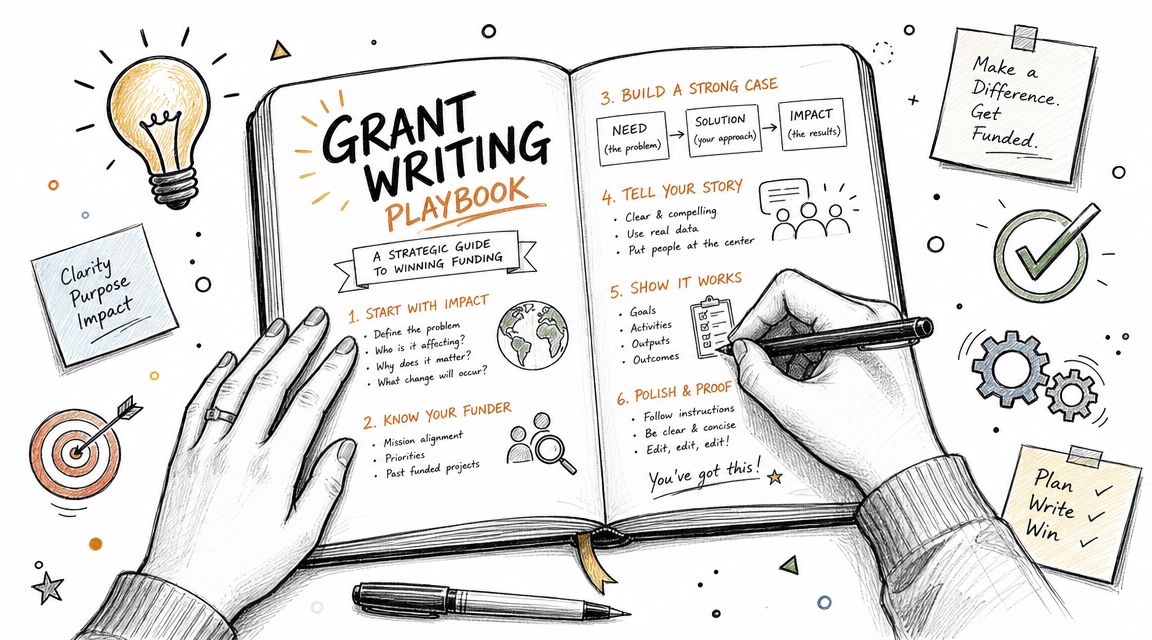 GRANT
WRITING
PLAYBOOK
A STRATEGIC GUIDE
TO WINNING FUNDING
1. START WITH IMPACT
• Define the problem
• Who is it affecting?
• Why does it matter?
• What change will occur?
2. KNOW YOUR FUNDER
• Mission alignment
• Priorities
• Past funded projects
3. BUILD A STRONG CASE
NEED
(the problem)
SOLUTION
(your approach)
IMPACT
(the results)
4. TELL YOUR STORY
• Clear & compelling
• Use real data
• Put people at the center
5. SHOW IT WORKS
• Goals
• Activities
• Outputs
• Outcomes
6. POLISH & PROOF
• Follow instructions
• Be clear & concise
• Edit, edit, edit!
You've got this!
Clarity
Purpose
Impact
Make a
Difference.
Get
Funded.
Plan ✓
Write ✓
Win ✓